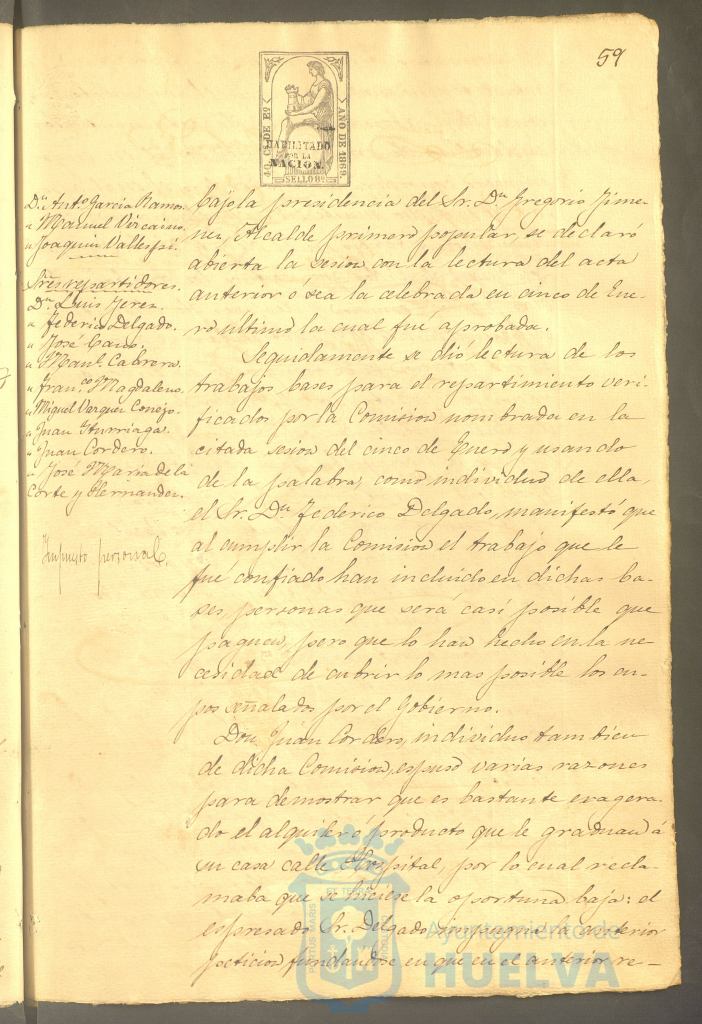 59
40 CS. DE Eº.
AÑO DE 1869.
HABILITADO
POR LA
NACION.
SELLO 8º.
Dn. Antº. Garcia Ramos.
" Manuel Vizcaino.
" Joaquin Vallespi.
Sres. repartidores.
Dn. Luis Jerez.
" Federico Delgado.
" José Cano.
" Manl. Cabrera.
" Franco. Magdaleno.
" Miguel Vazquez Conejo.
" Juan Iturriaga.
" Juan Cordero.
" José Maria de la
Corte y Hernandez.
Impuesto personal.
bajo la presidencia del Sr. Dn. Gregorio Jime-
nez, Alcalde primero popular, se declaró
abierta la sesion con la lectura del acta
anterior ó sea la celebrada en cinco de Ene-
ro último la cual fué aprobada.
Seguidamente se dió lectura de los
trabajos, bases para el repartimiento veri-
ficados por la Comision nombrada en la
citada sesion del cinco de Enero y usando
de la palabra, como individuo de ella,
el Sr. Dn. Federico Delgado, manifestó que
al cumplir la Comision el trabajo que le
fué confiado han incluido en dichas ba-
ses, personas que será casi posible que
paguen, pero que lo han hecho en la ne-
cesidad de cubrir lo mas posible los cu-
pos señalados por el Gobierno.
Don Juan Cordero, individuo tambien
de dicha Comision, espuso varias razones
para demostrar que es bastante exagera-
do el alquiler ó producto que le graduan á
su casa calle Hospital, por lo cual recla-
maba que se hiciese la oportuna baja: el
espresado Sr. Delgado impugna la anterior
peticion fundandose en que en el anterior re-
PORTUS MARIS
ET TERRAE
CUSTODIA
Ayuntamiento de
HUELVA